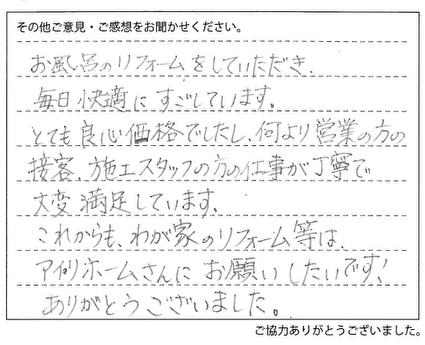 その他ご意見・ご感想をお聞かせください。
お風呂のリフォームをしていただき、
毎日快適にすごしています。
とても良心価格でしたし、何より営業の方の
接客、施工スタッフの方の仕事が丁寧で
大変満足しています。
これからも、わが家のリフォーム等は、
ホームさんにお願いしたいです!
ありがとうございました。
ご協力ありがとうございました。